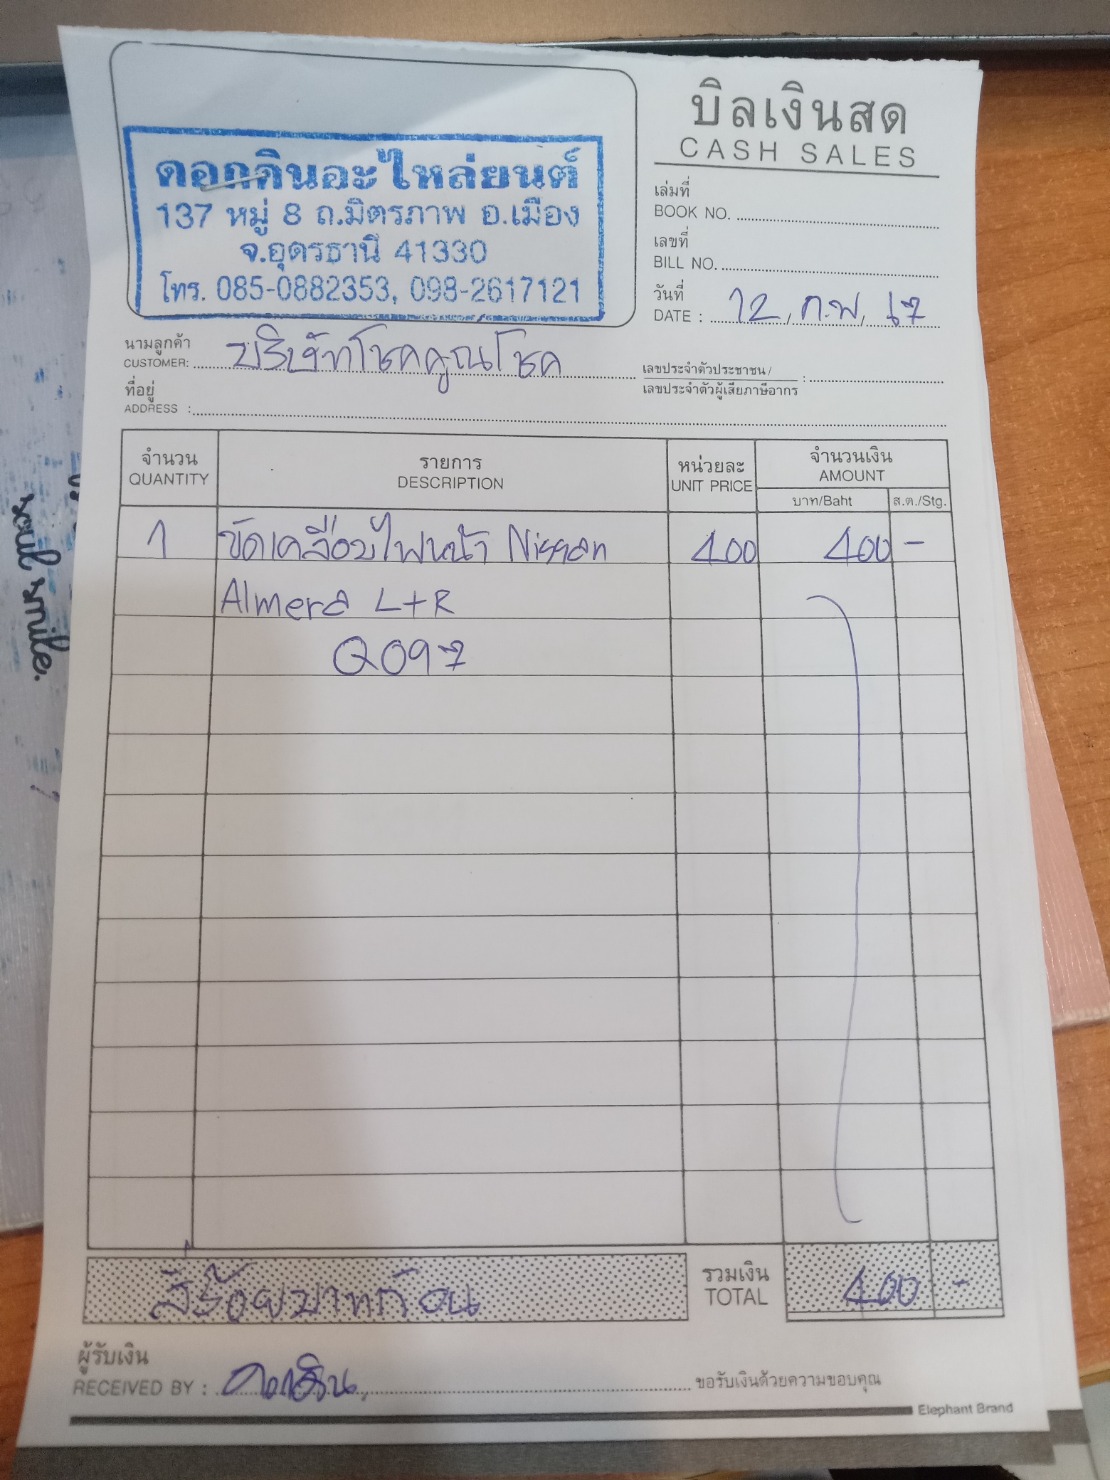 บิลเงินสด
CASH SALES
ดอกดินอะไหล่ยนต์
137 หมู่ 8 ถ.มิตรภาพ อ.เมือง
จ.อุดรธานี 41330
โทร. 085-0882353, 098-2617121
เล่มที่
BOOK NO.
เลขที่
BILL NO.
วันที่
DATE : 12, ก.พ, 67
นามลูกค้า
CUSTOMER: บริษัทโชคคูณโชค
เลขประจำตัวประชาชน /
เลขประจำตัวผู้เสียภาษีอากร :
ที่อยู่
ADDRESS :
จำนวน รายการ หน่วยละ จำนวนเงิน
QUANTITY DESCRIPTION UNIT PRICE AMOUNT
บาท/Baht ส.ต./Stg.
1 ขัดเคลือบไฟหน้า Nissan 400 400 -
Almera L+R
Q097
สี่ร้อยบาทถ้วน
รวมเงิน
TOTAL 400 -
ผู้รับเงิน
RECEIVED BY : ดอกดิน
ขอรับเงินด้วยความขอบคุณ
Elephant Brand
soul smile.